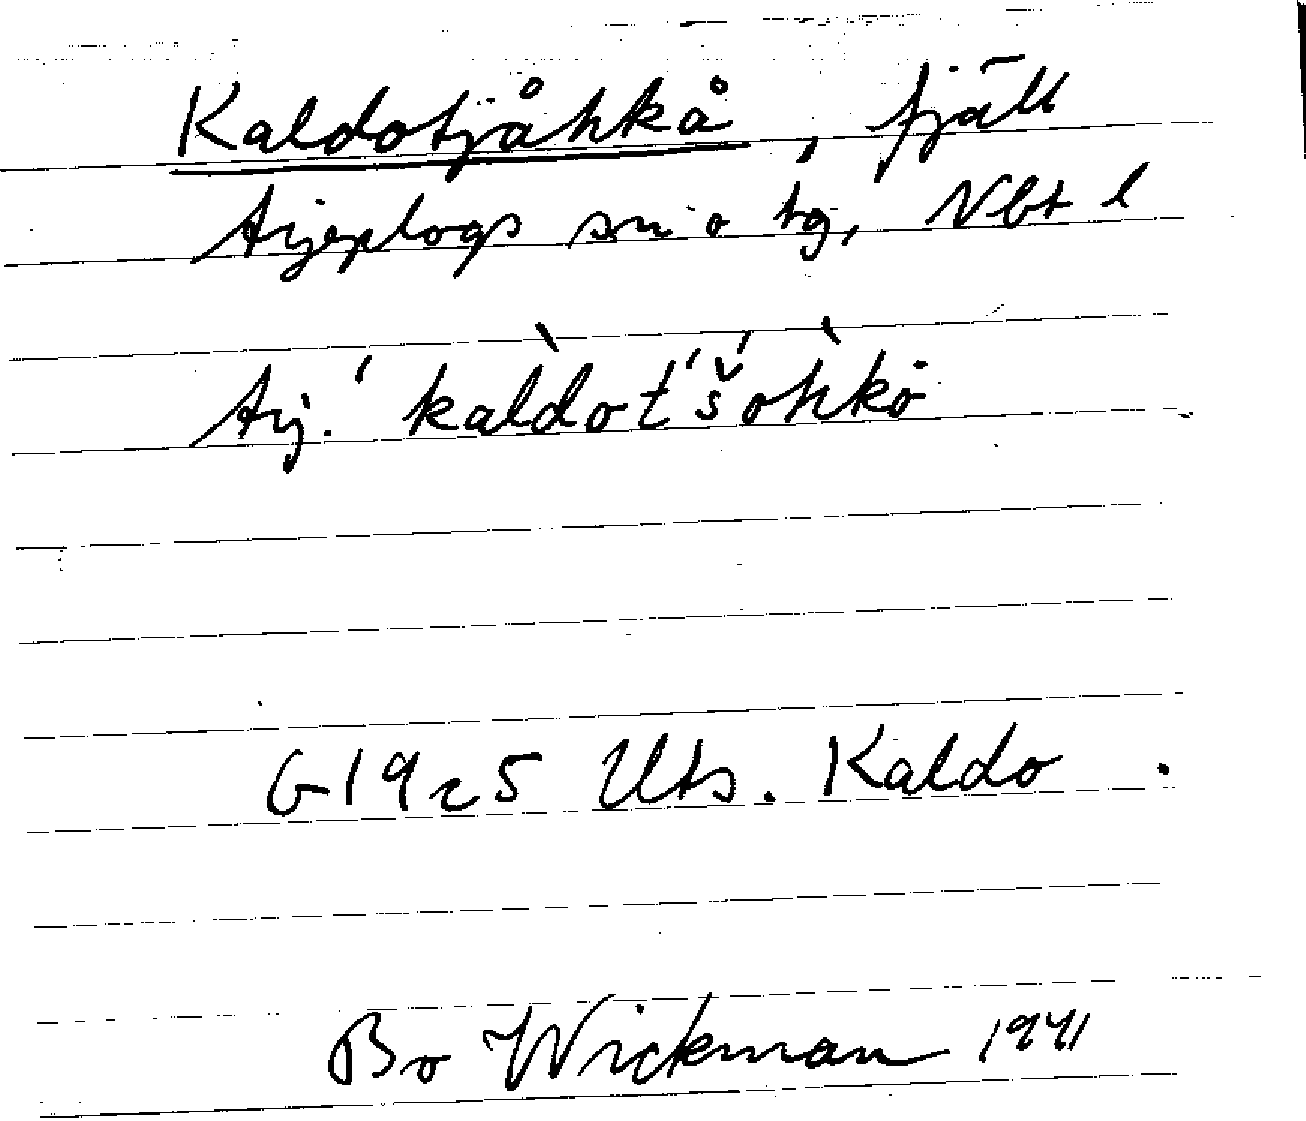 Kaldotjåhkå, fjäll
Arjeplogs sn o tg, Nbt l
Arj. ˈkàldot́ˈš́òhkȯ
G 1925 Uts. Kaldo.
Bo Wickman 1941